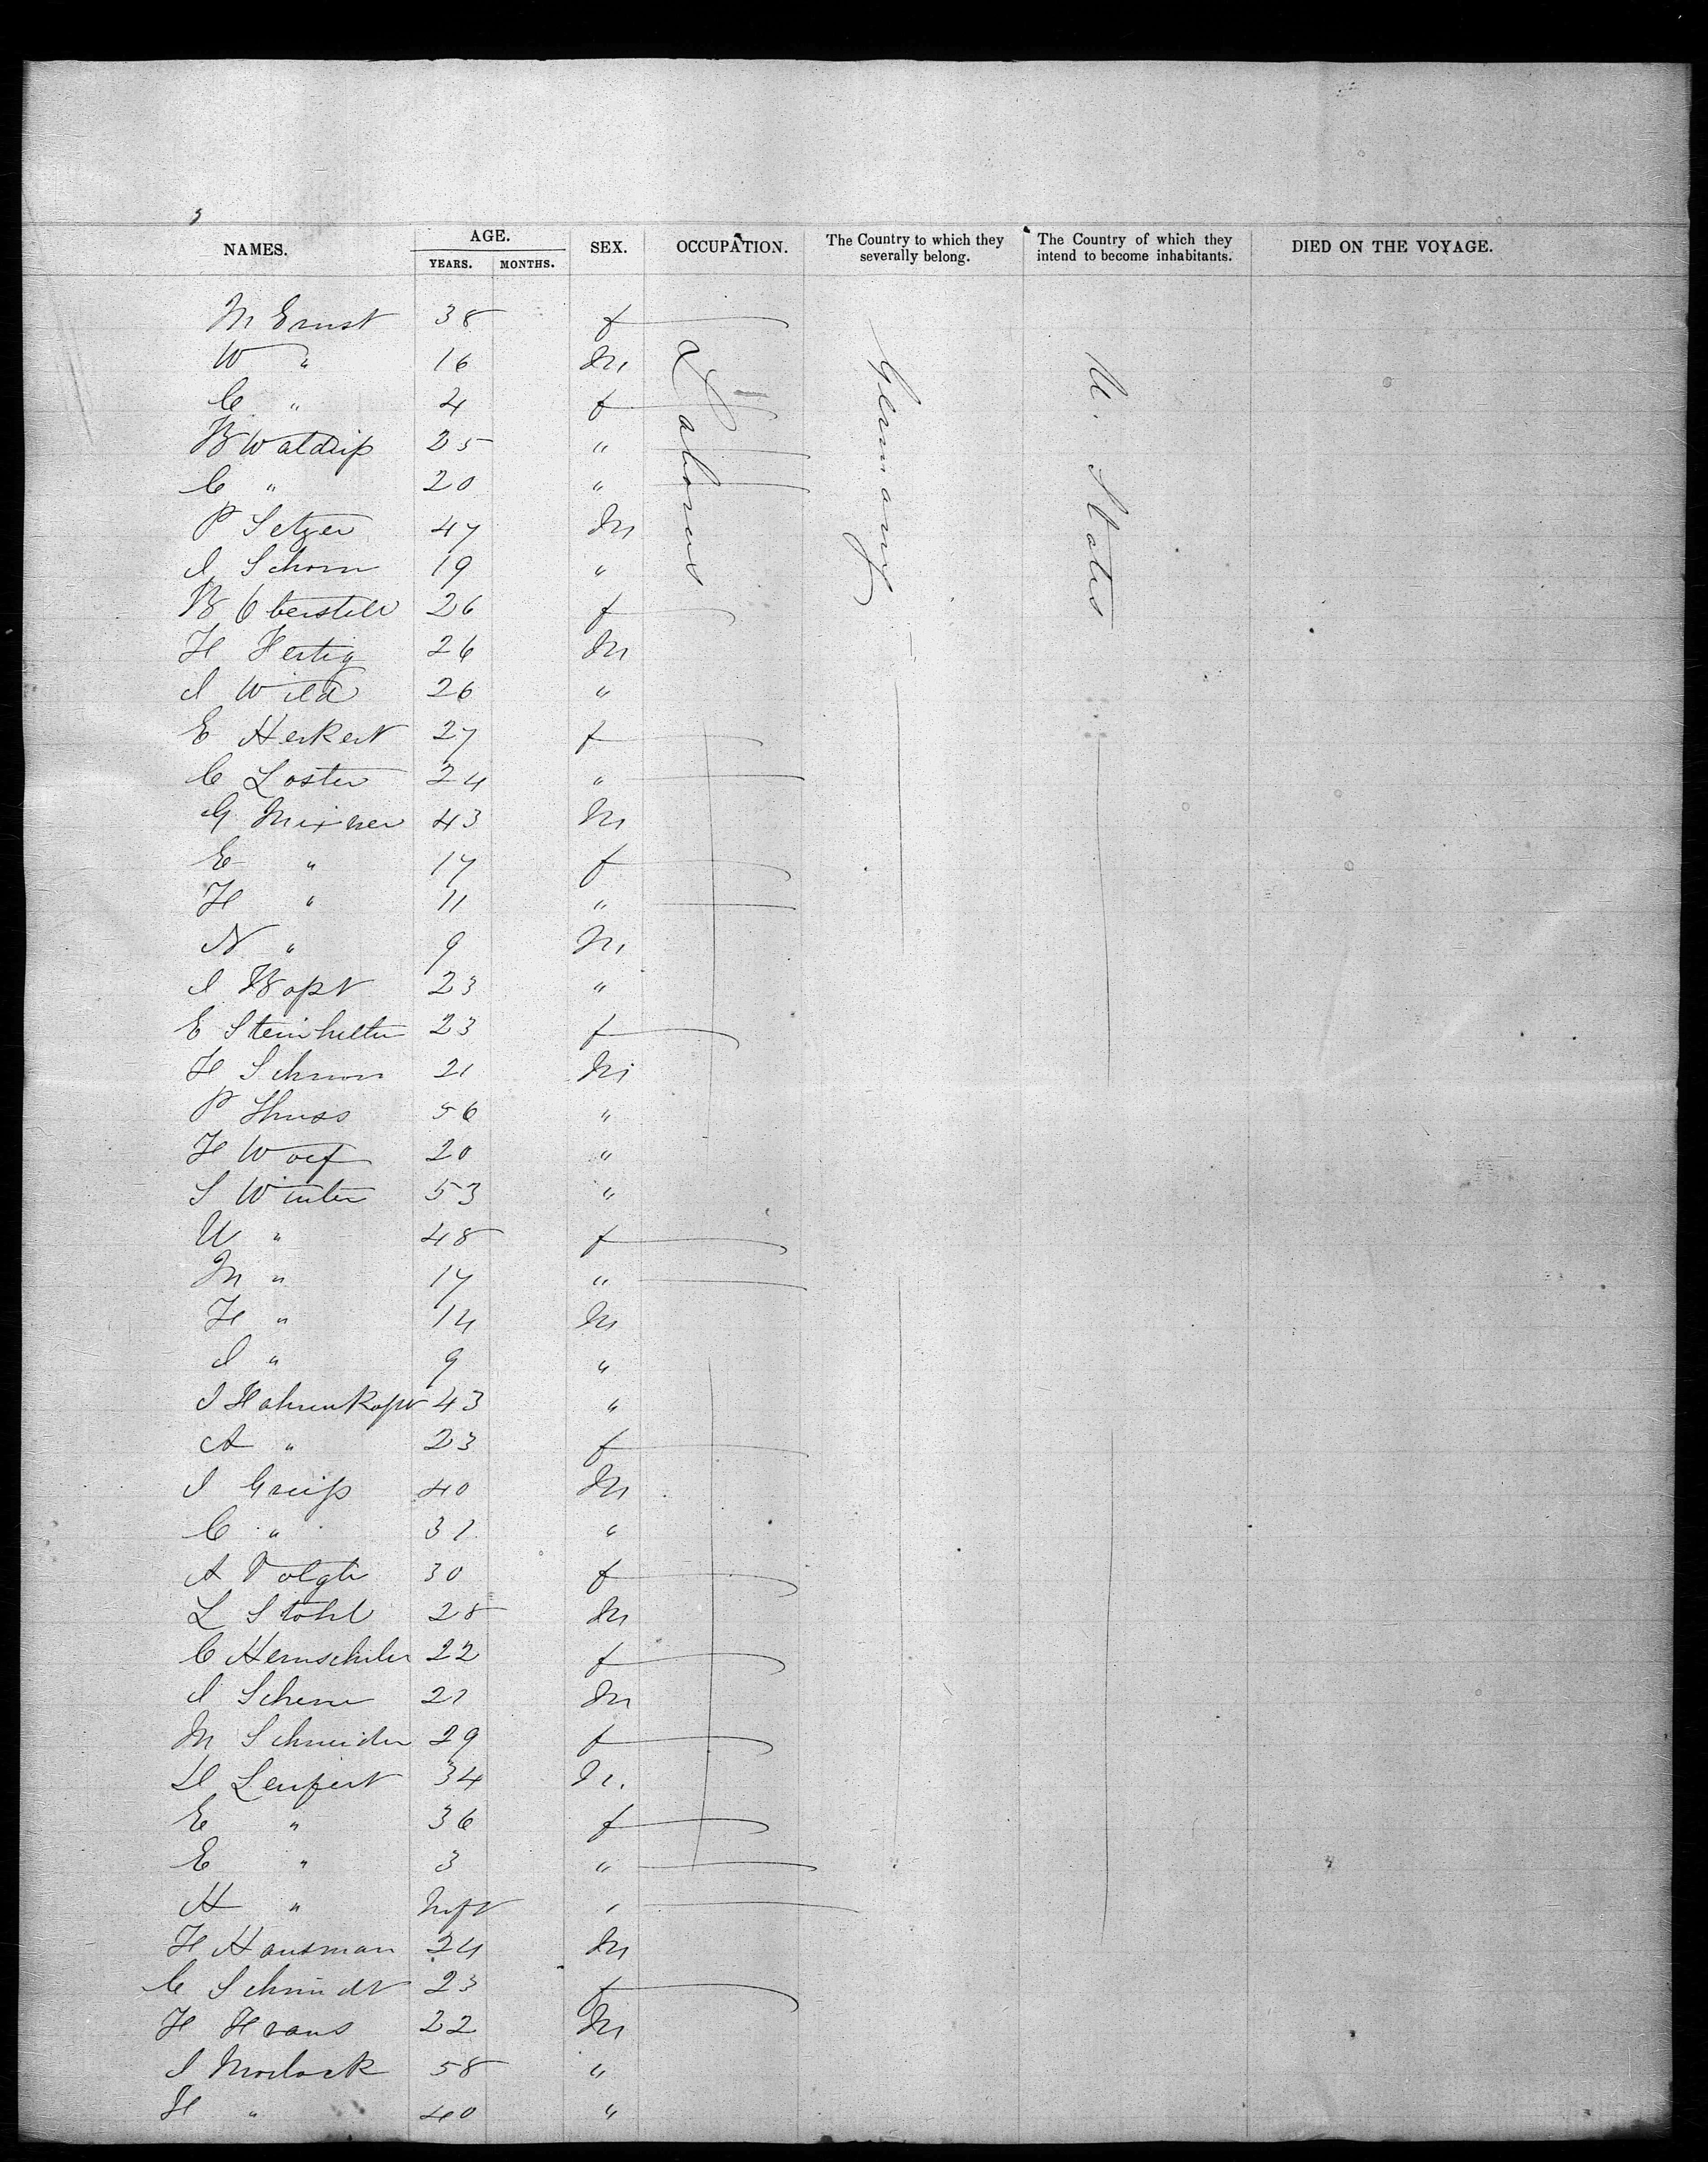 NAMES. AGE. YEARS. MONTHS. SEX. OCCUPATION. The Country to which they severally belong. The Country of which they intend to become inhabitants. DIED ON THE VOYAGE.
M Ernst 38 f
W " 16 M
C " 4 f
B Waldrip 25 "
C " 20 "
P Setzer 47 M
J Schorn 19 "
B 26 f
H Hertig 26 M
J Wild 26 "
E Herkert 27 f
C Loster 24 "
G Mixner 43 M
E " 17 f
H " 11 "
N " 9 M
J Bopt 23 "
E 23 f
H 21 M
P 56 "
H 20 "
S Winter 53 "
U " 48 f
M " 17 "
H " 14 M
J " 9 "
J Hahnenkopt 43 "
A " 23 f
J Greip 40 M
C " 31 "
A 30 f
L Stohl 28 M
C 22 f
J 21 M
M Schneider 29 f
H Leupert 34 M
E " 36 f
E " 3 "
H " Inft "
H Hausman 24 M
C Schmidt 23 f
H 22 M
J Morlock 58 "
H " 40 "
Laborers
Germany
U. States